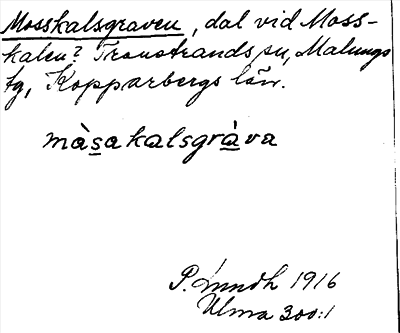 Mosskalsgraven, dal vid Moss-
kalen? Transtrands sn, Malungs
tg, Kopparbergs län.
màsakalsgràva
P. Lundh 1916
Ulma 300:1